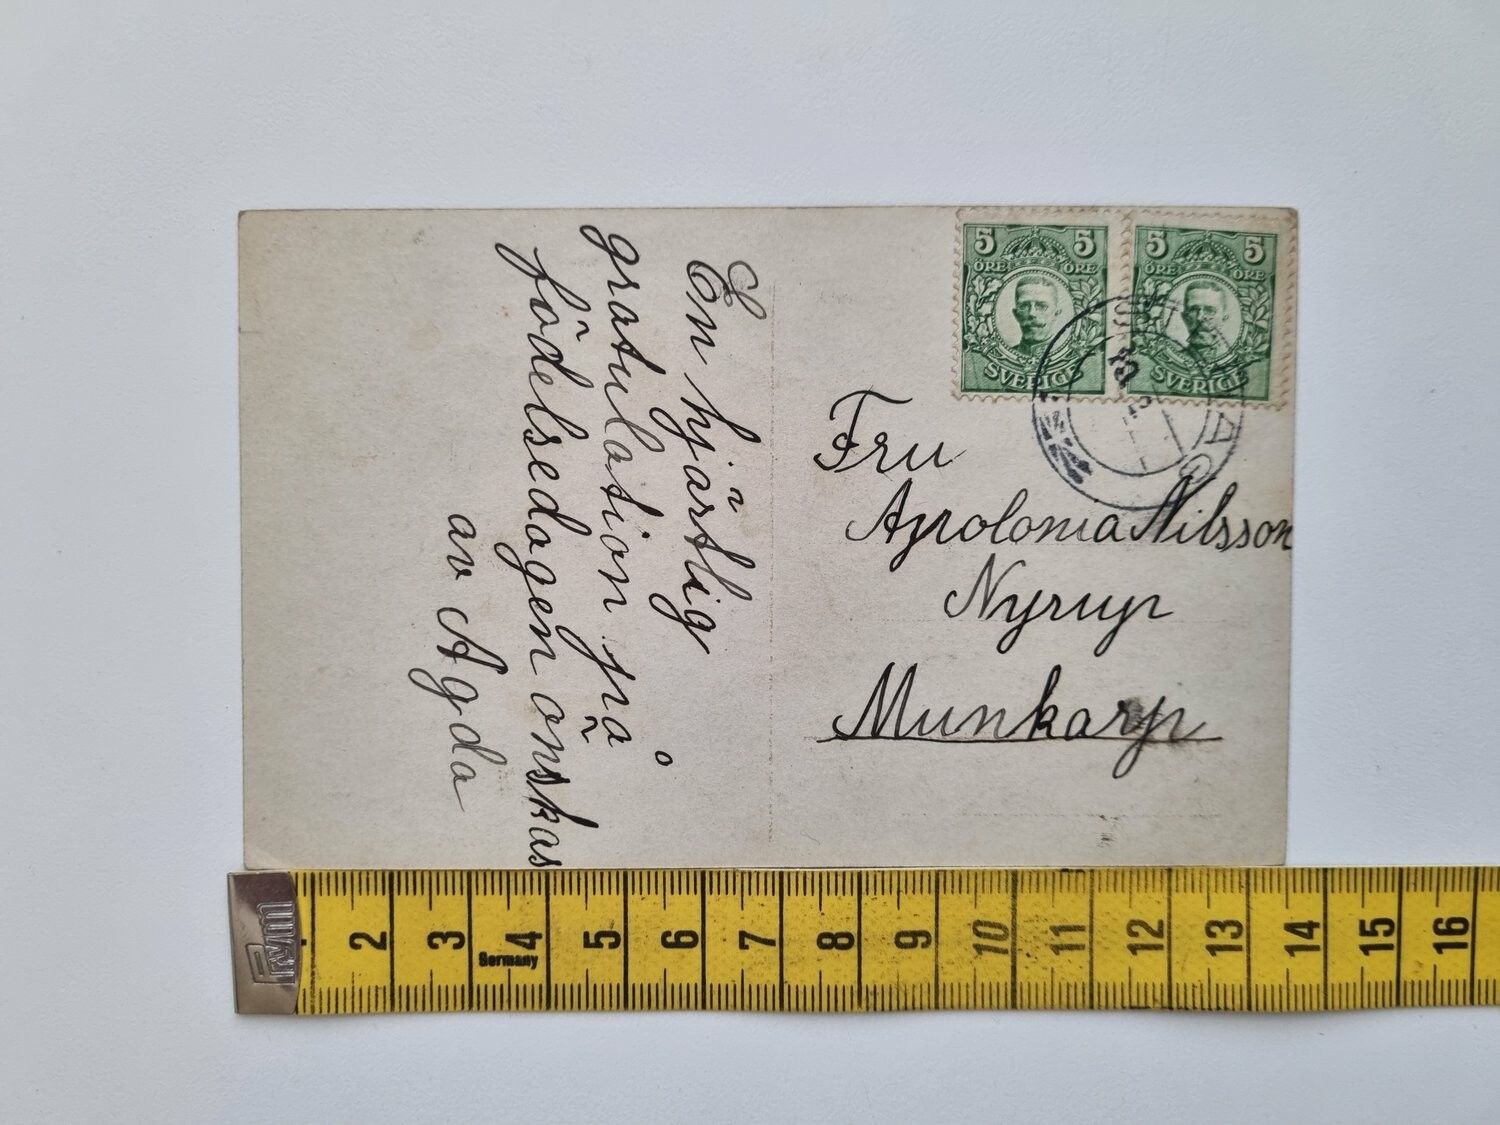 En hjärtlig
gratulation på
födelsedagen önskas
av Agda
5 5
ÖRE ÖRE
SVERIGE
5 5
ÖRE ÖRE
SVERIGE
Fru
Apolonia Nilsson
Nyrup
Munkarp
Prym
2 3 4 5 6 7 8 9 10 11 12 13 14 15 16
Germany